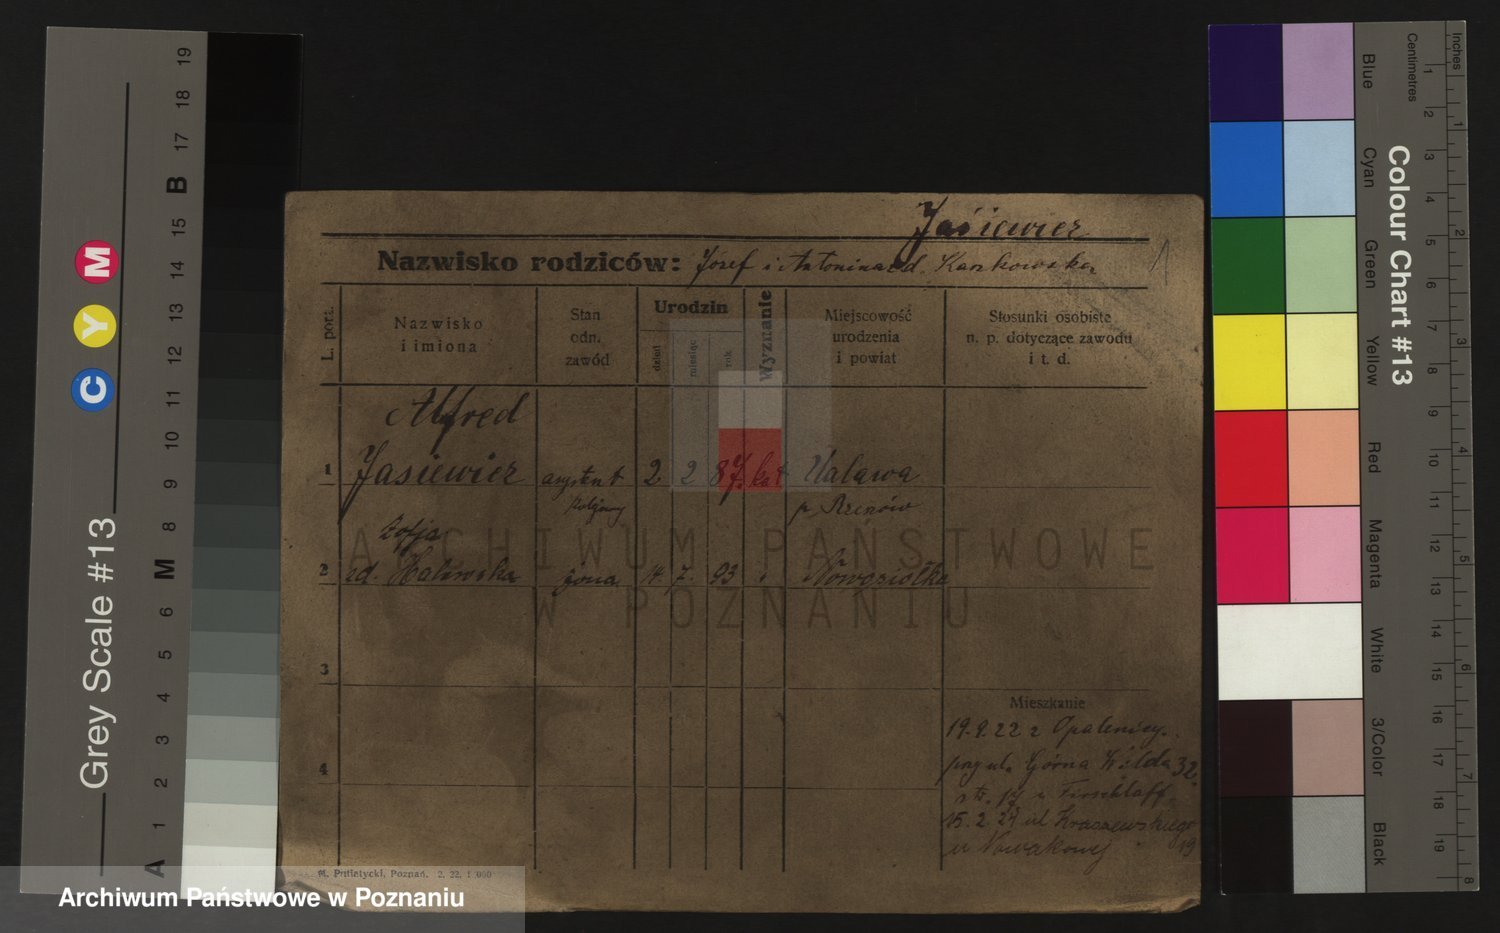 Jasiewicz
Nazwisko rodziców: Józef i Antonina zd. Karkowska
L. porz.
Nazwisko i imiona
Stan odn. zawód
Urodzin
dzień
miesiąc
rok
Wyznanie
Miejscowość urodzenia i powiat
Stosunki osobiste n. p. dotyczące zawodu i t. d.
Alfred
1 Jasiewicz asystent 2 2 87. kat Ualawa
kolejowy p.
Zofja
2 zd. żona 14 7. 93 Nowosiółka
3
4
Mieszkanie
19.9.22 z Opalenicy.
przy ul. Górna Wilda 32
15.2.24 ul Kraszewskiego 19
u Nowakowej
M. Putiatycki, Poznań. 2. 22. 1 000
ARCHIWUM PAŃSTWOWE
W POZNANIU
Archiwum Państwowe w Poznaniu
Grey Scale #13
C Y M
A 1 2 3 4 5 6 M 8 9 10 11 12 13 14 15 B 17 18 19
Colour Chart #13
Blue
Cyan
Green
Yellow
Red
Magenta
White
3/Color
Black
Centimetres
1 2 3 4 5 6 7 8 9 10 11 12 13 14 15 16 17 18 19
Inches
1 2 3 4 5 6 7 8